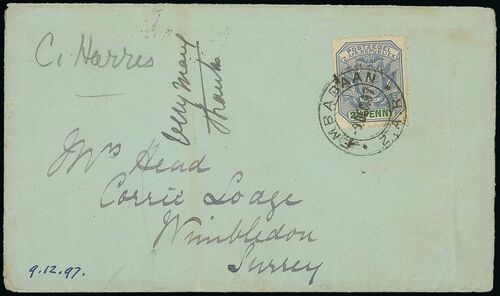 C. Harres
Very Many
thanks
POSTZEGEL
Z. AFR. REPUBLIEK
2½ PENNY
EMBABAAN
Z.A.R.
Mrs Head
Corrie Lodge
Wimbledon
Surrey
9.12.97.